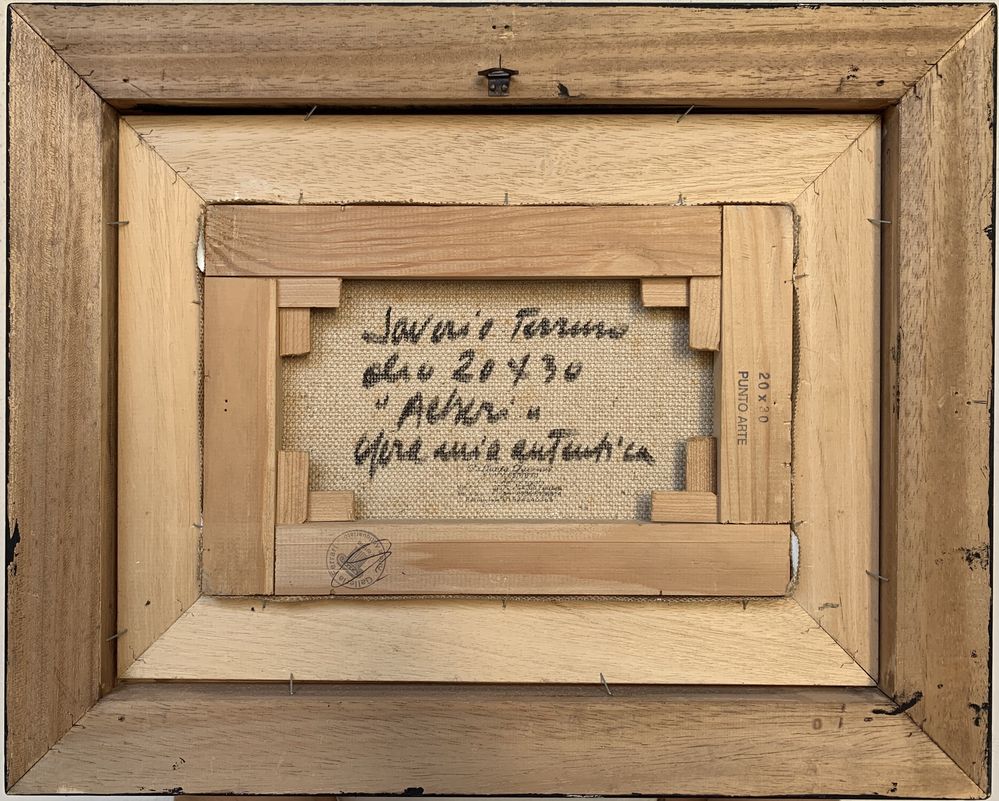 Saverio Terruso
olio 20 X 30
"Alberi"
opera mia autentica
20 x 30
PUNTO ARTE
Galleria Ferrari